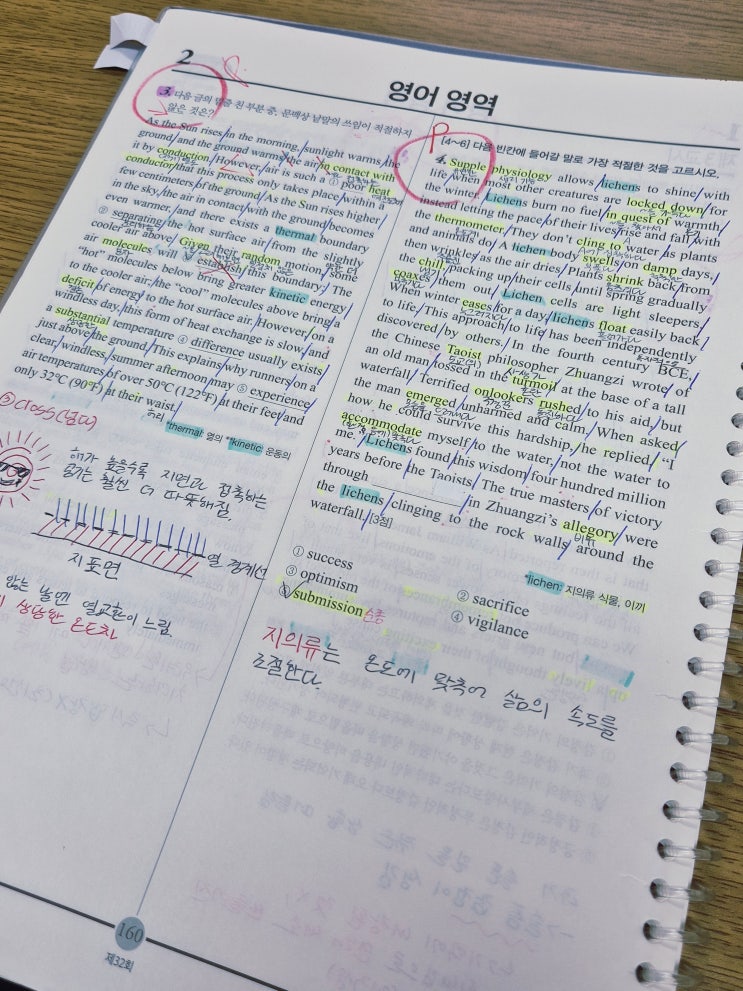 2
영어 영역
3. 다음 글의 밑줄 친 부분 중, 문맥상 낱말의 쓰임이 적절하지
않은 것은?
As the Sun rises in the morning, sunlight warms the
ground, and the ground warms the air in contact with
it by conduction. However, air is such a ① poor heat
conductor that this process only takes place within a
few centimeters of the ground. As the Sun rises higher
in the sky, the air in contact with the ground becomes
even warmer, and there exists a thermal boundary
② separating the hot surface air from the slightly
cooler air above. Given their random motion, some
air molecules will establish this boundary: The
"hot" molecules below bring greater kinetic energy
to the cooler air; the "cool" molecules above bring a
deficit of energy to the hot surface air. However, on a
windless day, this form of heat exchange is slow, and
a substantial temperature ④ difference usually exists
just above the ground. This explains why runners on a
clear, windless, summer afternoon may ⑤ experience
air temperatures of over 50℃ (122℉) at their feet and
only 32℃ (90℉) at their waist.
*thermal: 열의 **kinetic: 운동의
허리
③ cross (넘다)
해가 높을수록 지면과 접촉하는
공기는 훨씬 더 따뜻해짐.
열 경계선
지표면
않는 날엔 열교환이 느림.
상당한 온도차
[4~6] 다음 빈칸에 들어갈 말로 가장 적절한 것을 고르시오.
4. Supple physiology allows lichens to shine with
life when most other creatures are locked down for
the winter. Lichens burn no fuel in quest of warmth,
instead letting the pace of their lives rise and fall with
the thermometer. They don't cling to water as plants
and animals do. A lichen body swells on damp days,
then wrinkles as the air dries. Plants shrink back from
the chill, packing up their cells until spring gradually
coaxes them out. Lichen cells are light sleepers.
When winter eases for a day, lichens float easily back
to life. This approach to life has been independently
discovered by others. In the fourth century BCE,
the Chinese Taoist philosopher Zhuangzi wrote of
an old man tossed in the turmoil at the base of a tall
waterfall. Terrified onlookers rushed to his aid, but
the man emerged unharmed and calm. When asked
how he could survive this hardship, he replied, "I
accommodate myself to the water, not the water to
me." Lichens found this wisdom four hundred million
years before the Taoists. The true masters of victory
through ________ in Zhuangzi's allegory were
the lichens clinging to the rock walls around the
비유
waterfall. [3점]
*lichen: 지의류 식물, 이끼
① success
② sacrifice
③ optimism
④ vigilance
⑤ submission 순종
지의류는 온도에 맞추어 삶의 속도를
조절한다.
160
제32회